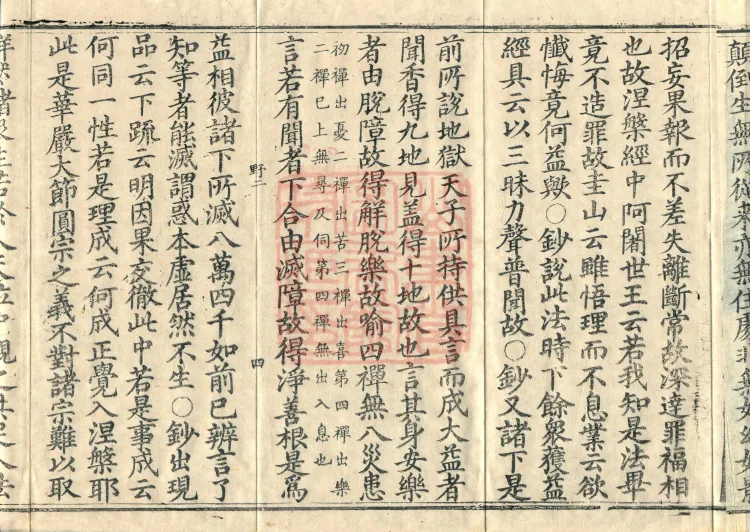 顛倒生無所從來亦無住處
招妄果報而不差失離斷常故深達罪福相
也故涅槃經中阿闍世王云若我知是法畢
竟不造罪故圭山云雖悟理而不息業云欲
懺悔竟何益歟○鈔說此法時下餘眾獲益
經具云以三昧力聲普聞故○鈔又諸下是
前所說地獄天子所持供具言而成大益者
聞香得九地見盖得十地故也言其身安樂
者由脫障故得解脫樂故喻四禪無八災患
初禪出憂二禪出苦三禪出喜第四禪出樂
二禪已上無尋及伺第四禪無出入息也
言若有聞者下合由滅障故得淨善根是為
野二
四
益相彼諸下所滅八萬四千如前已辨言了
知等者能滅謂惑本虛居然不生○鈔出現
品云下疏云明因果交徹此中若是事成云
何同一性若是理成云何成正覺入涅槃耶
此是華嚴大節圓宗之義不對諸宗難以取